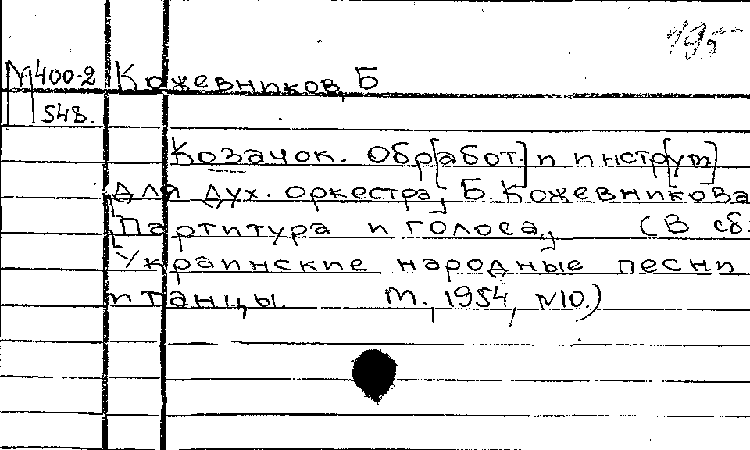 195
М400-2 Кожевников, Б
548.
Козачок. Обр[абот.] и инстр[ум]
для дух. оркестра, Б. Кожевникова
[Партитура и голоса, (В сб.
Украинские народные песни
и танцы. М., 1954, №10.)